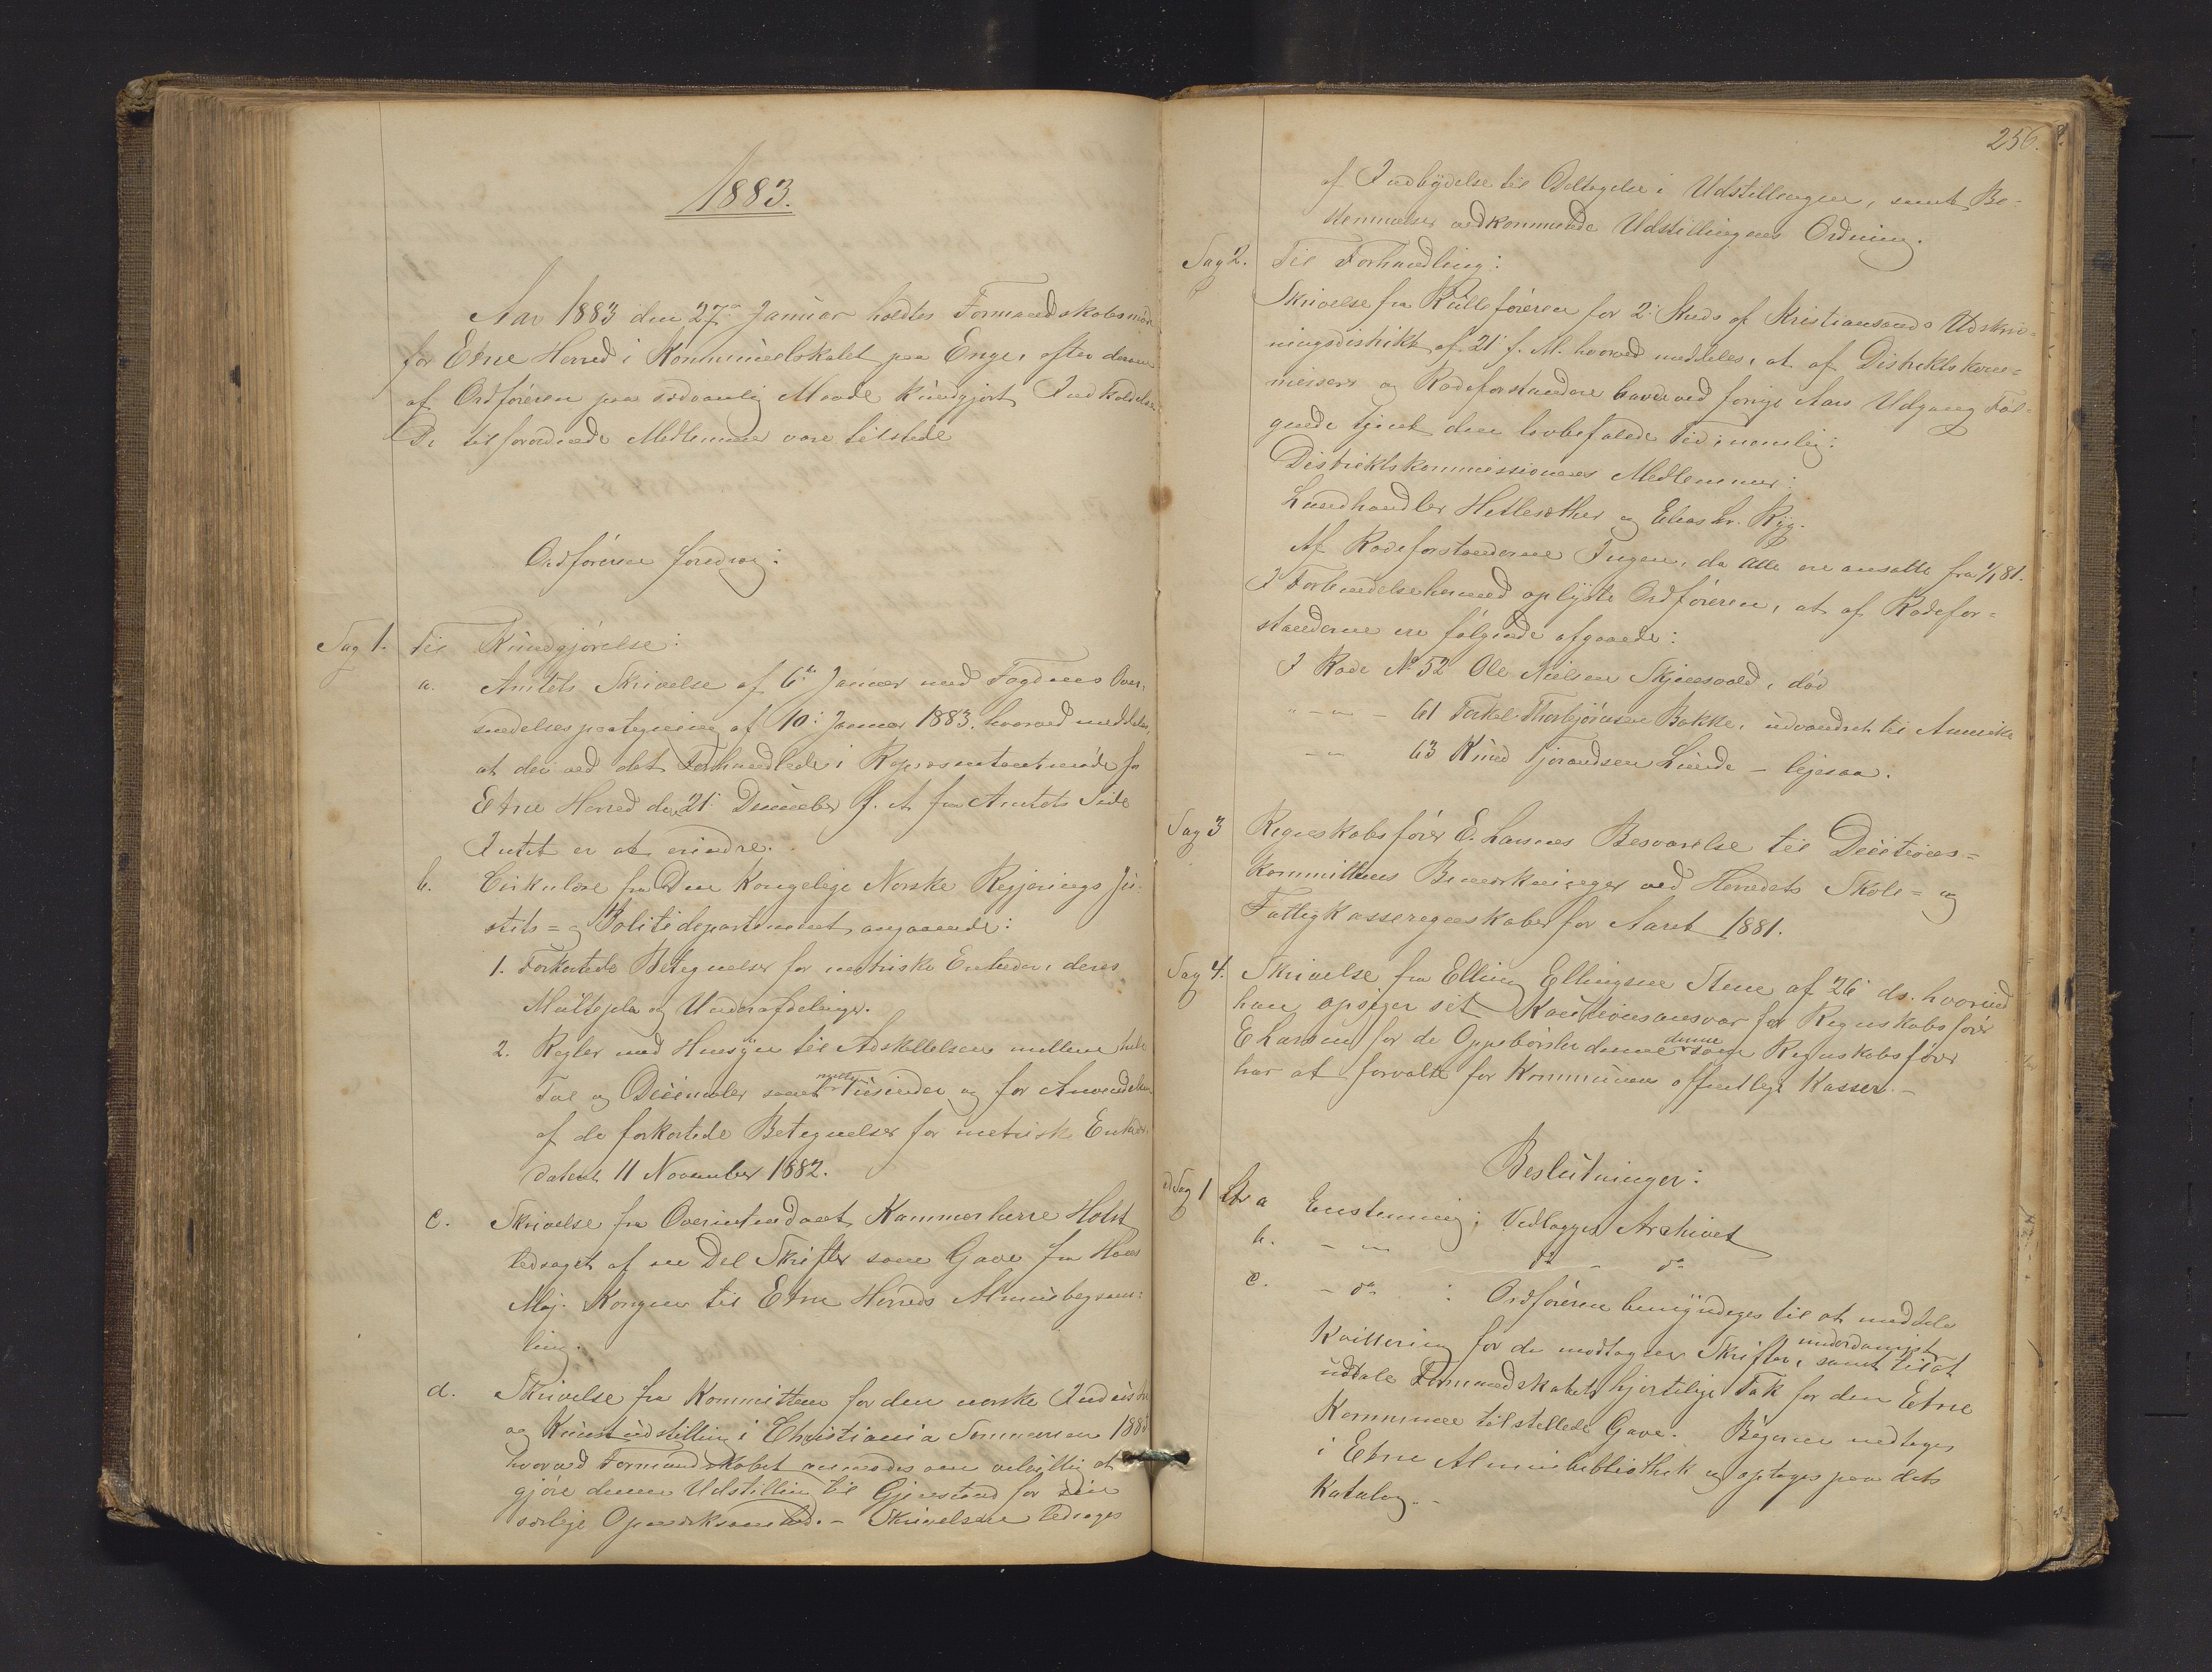 1883.
Aar 1883 den 27de Januar holdtes Formandskabsmöde
for Etne Herred i Kommunelokalet paa Enge, efter denne
af Ordföreren paa sædvanlig Maade kundgjort Indkaldelse
De tilforordnede Medlemmer vare tilstede
Ordföreren foredrog:
Sag 1. Til Kundgjörelse:
a. Amtets Skrivelse af 6te Januar med Fogdens Over-
sendelsespaategning af 10: Januar 1883. hvorved meddeles,
at der ved det Forhandlede i Repræsentantmöde for
Etne Herred den 21: December f. A. fra Amtets Side
Intet er at erindre.
b. Cirkulære fra Den Kongelige Norske Regjerings Ju-
stits= og Politidepartement, angaaende:
1. Forkortede Betegnelser for metriske Enheder, deres
Multipla og Underafdelinger.
2. Regler med Hensyn til Adskillelsen mellem hele
Tal og Decimaler samt mellem Tusinder og for Anvendelsen
af de forkortede Betegnelser for metriske Enheder,
dateret 11 November 1882.
c. Skrivelse fra Overintendant, Kammerherre Holst
ledsaget af en Del Skrifter som Gave fra Hans
Maj. Kongen til Etne Herreds Almuebogsam-
ling.
d. Skrivelse fra Kommitteen for den norske Industri
og Kunstudstilling i Christiania Sommeren 1883
hvorved Formandskabet anmodes om velvillig at
gjöre denne Udstilling til Gjenstand for sin
særlige Opmærksomhed. - Skrivelsen ledsages
256.
af Indbydelse til Deltagelse i Udstillingen, samt Be-
stemmelser vedkommende Udstillingens Ordning.
Sag 2. Til Forhandling:
Skrivelse fra Rulleföreren for 2: Kreds af Kristiansands Udskriv-
ningsdistrikt af 21 f. M. hvorved meddeles, at af Distriktskom-
missers og Rodeforstandere have ved forrige Aars Udgang Föl-
gende tjent den lovbefalede Tid, nemlig:
Distriktskommissionens Medlemmer:
Landhandler Hetlesæther og Elias Ryg.
Af Rodeforstanderne Ingen, da Alle ere ansatte fra 1/1 81.
I Forbindelse hermed oplyste Ordföreren, at af Rodefor-
standerne ere fölgende afgaaede:
I Rode No 52 Ole Nielsen Skjensvold, död
" - " - 61 Torkel Thorbjörnsen Bakke, udvandret til Amerika
- " - 63 Knud Tjerandsen Lunde - ligesaa.
Sag 3 Regnskabsförer E. Larsens Besvarelse til Decisions=
kommitteens Bemærkninger ved Herredets Skole= og
Fattigkasseregnskaber for Aaret 1881.
Sag 4. Skrivelse fra Elling Ellingsen Stene af 26 ds. hvorved
han opsiger sit Kautionsansvar for Regnskabsförer
E Larsen for de Oppebörsler denne som Regnskabsförer
denne
har at forvalte for Kommunens offentlige Kasser. -
Beslutninger:
ad Sag 1 Litr a Enstemmig: Vedlægges Archivet
b. - " - do - do
c. - do : Ordföreren bemyndiges til at meddele
Kvittering for de modtagne Skrifter, samt til at underdanigst
udtale Formandskabets hjertelige Tak for den Etne
Kommune tilstillede Gave. Bögerne nedtages
i Etne Almuebibliothek og optages paa dets
Katalog. -